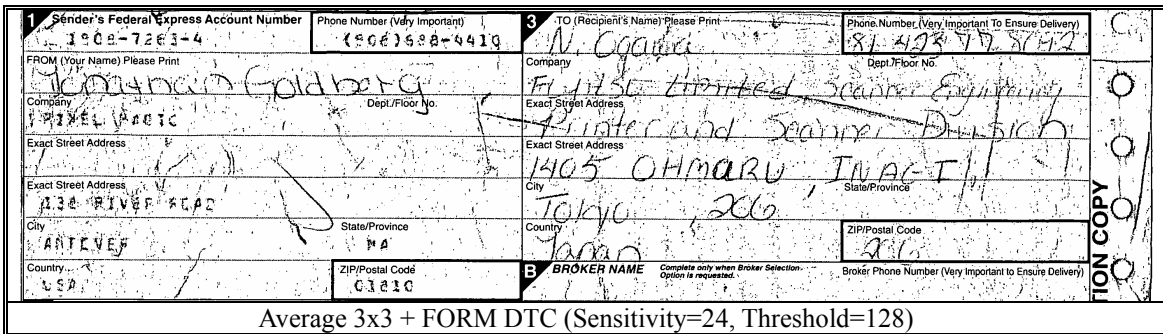 1 Sender's Federal Express Account Number
1908-7263-4
Phone Number (Very Important)
(508)688-4410
FROM (Your Name) Please Print
Jonathain Goldberg
Company
PIXEL MAGIC
Dept./Floor No.
Exact Street Address
Exact Street Address
138 RIVER ROAD
City
ANDOVER
State/Province
MA
Country
USA
ZIP/Postal Code
01810
3 TO (Recipient's Name) Please Print
N. Ogawa
Phone Number (Very Important To Ensure Delivery)
81 423 77
Company
Dept./Floor No.
Fujitsu Limited, Scanner Engineering
Exact Street Address
Printer and Scanner Division
Exact Street Address
1405 OHMARU, INAGI
City
State/Province
Tokyo, 206
Country
Japan
ZIP/Postal Code
206
B BROKER NAME
Complete only when Broker Selection Option is requested.
Broker Phone Number (Very Important to Ensure Delivery)
TION COPY
Average 3x3 + FORM DTC (Sensitivity=24, Threshold=128)